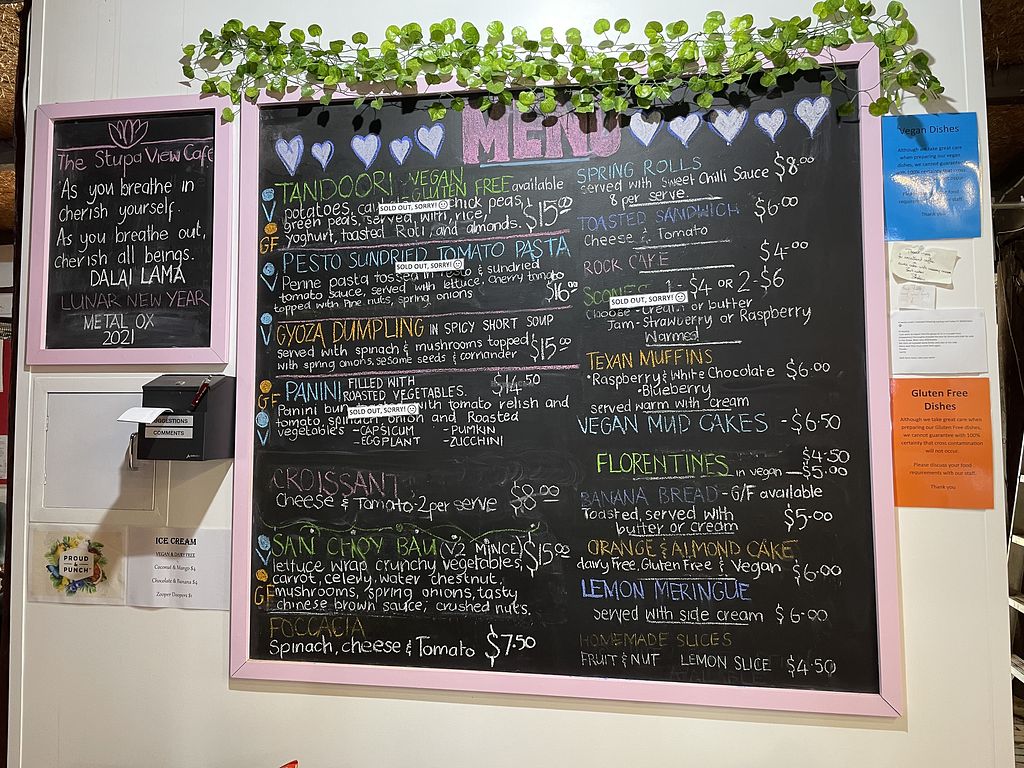 The Stupa View Cafe
As you breathe in
cherish yourself.
As you breathe out,
cherish all beings.
DALAI LAMA
LUNAR NEW YEAR
METAL OX
2021
SUGGESTIONS
COMMENTS
PROUD
&
PUNCH
ICE CREAM
VEGAN & DAIRY FREE
Coconut & Mango $4
Chocolate & Banana $4
Zooper Doopers $1
MENU
TANDOORI VEGAN
GLUTEN FREE available
potatoes, chick peas,
SOLD OUT, SORRY!
green peas, served with rice,
yoghurt, toasted Roti, and almonds. $15.00
V
GF
PESTO SUNDRIED TOMATO PASTA
SOLD OUT, SORRY!
Penne pasta tossed in & sundried
tomato sauce, served with lettuce, cherry tomato
topped with Pine nuts, spring onions $16.00
V
GYOZA DUMPLING IN SPICY SHORT SOUP
served with spinach & mushrooms topped
with spring onions, sesome seeds & coriander $15.00
V
PANINI FILLED WITH
ROASTED VEGETABLES. $14.50
Panini bun with tomato relish and
SOLD OUT, SORRY!
tomato, spinach, onion and Roasted
vegetables -CAPSICUM -PUMKIN
-EGGPLANT -ZUCCHINI
GF
V
CROISSANT
Cheese & Tomato-2per serve $8.00
SAN CHOY BAU (V2 MINCE) $15.00
lettuce wrap crunchy vegetables,
carrot, celery, water chestnut,
mushrooms, spring onions, tasty
chinese brown sauce, crushed nuts.
V
GF
FOCCACIA
Spinach, cheese & Tomato $7.50
SPRING ROLLS $8.00
served with sweet Chilli Sauce
8 per serve
TOASTED SANDWICH $6.00
Cheese & Tomato
ROCK CAKE $4.00
SCONES 1-$4 OR 2-$6
SOLD OUT, SORRY!
Choose -cream or butter
Jam-Strawberry or Raspberry
Warmed!
TEXAN MUFFINS
*Raspberry & White Chocolate $6.00
•Blueberry
served warm with cream
VEGAN MUD CAKES -$6.50
FLORENTINES $4.50
in vegan —$5.00
BANANA BREAD - G/F available
Toasted, served with
butter or cream $5.00
ORANGE & ALMOND CAKE
dairy Free, Gluten Free & Vegan $6.00
LEMON MERINGUE
served with side cream $6.00
HOMEMADE SLICES
FRUIT & NUT LEMON SLICE $4.50
Vegan Dishes
Although we take great care
when preparing our vegan
dishes, we cannot guarantee
with 100% certainty that cross
Thank you
Gluten Free
Dishes
Although we take great care when
preparing our Gluten Free dishes,
we cannot guarantee with 100%
certainty that cross contamination
will not occur.
Please discuss your food
requirements with our staff.
Thank you